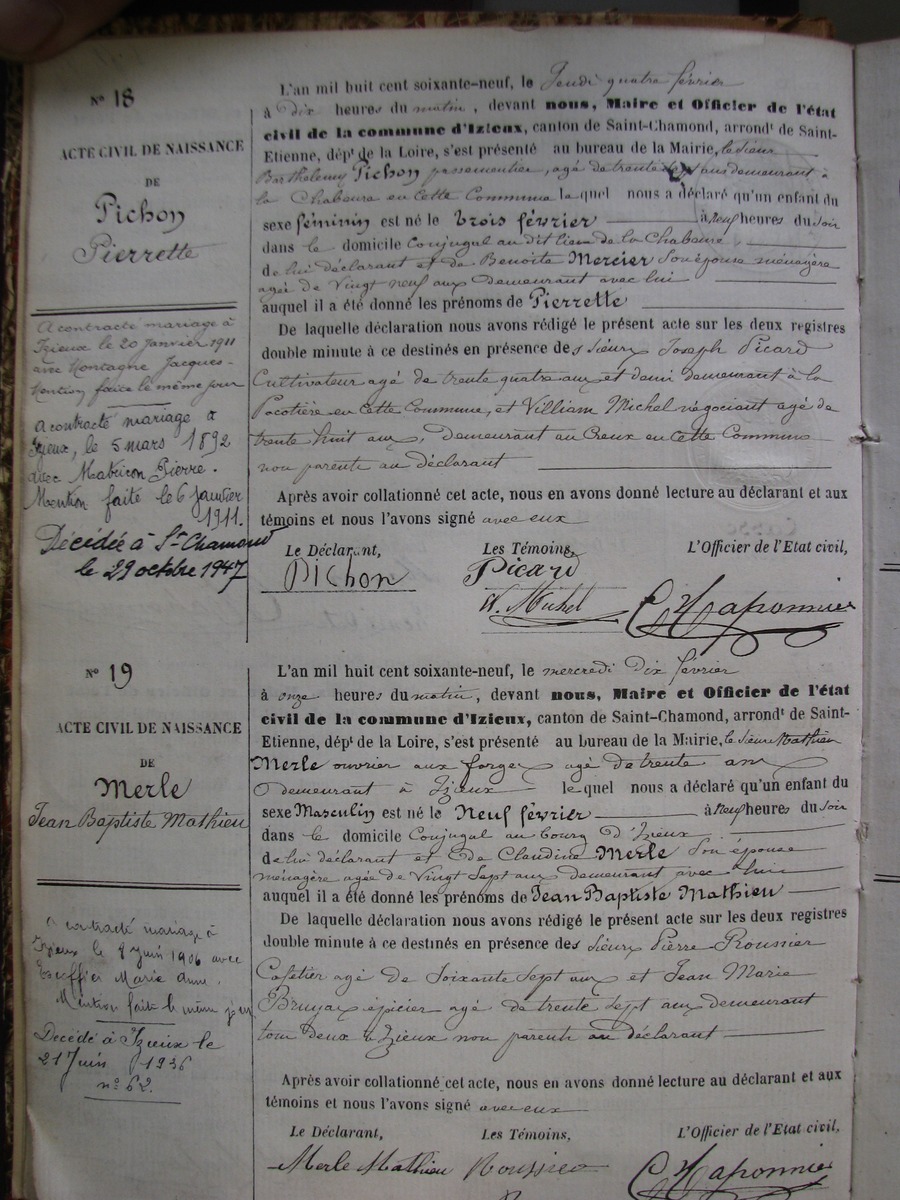 N° 18
ACTE CIVIL DE NAISSANCE
DE
Pichon
Pierrette
A contracté mariage à
Izieux le 20 Janvier 1911
avec Montagne Jacques-
Mention faite le même jour
A contracté mariage à
Izieux, le 5 mars 1892
avec Matricon Pierre.
Mention faite le 6 Janvier
1911.
Décédée à St Chamond
le 29 octobre 1947
L'an mil huit cent soixante-neuf, le Jeudi quatre février
à dix heures du matin, devant nous, Maire et Officier de l'état
civil de la commune d'Izieux, canton de Saint-Chamond, arrondt de Saint-
Etienne, dépt de la Loire, s'est présenté au bureau de la Mairie, le sieur
Barthelemy Pichon passementier, agé de trente sept ans demeurant à
la Chabeure en cette Commune lequel nous a déclaré qu'un enfant du
sexe féminin est né le trois février à neuf heures du soir
dans le domicile Conjugal au dit lieu de la Chabeure
de lui déclarant et de Benoite Mercier Son épouse ménagère
agée de Vingt neuf ans demeurant avec lui
auquel il a été donné les prénoms de Pierrette
De laquelle déclaration nous avons rédigé le présent acte sur les deux registres
double minute à ce destinés en présence des sieurs Joseph Picard
Cultivateur agé de trente quatre ans et demi demeurant à la
Pacotière en cette Commune, et Villiam Michel négociant agé de
trente huit ans, Demeurant au Creux en cette Commune
non parents au déclarant
Après avoir collationné cet acte, nous en avons donné lecture au déclarant et aux
témoins et nous l'avons signé avec eux
Le Déclarant, Les Témoins, L'Officier de l'Etat civil,
Pichon Picard
W. Michel C Chaponnier
N° 19
ACTE CIVIL DE NAISSANCE
DE
Merle
Jean Baptiste Mathieu
A contracté mariage à
Izieux le 8 Juin 1906 avec
Marie Anne.
Mention faite le même jour
Décédé à Izieux le
21 Juin 1936
n° 62.
L'an mil huit cent soixante-neuf, le mercredi dix février
à onze heures du matin, devant nous, Maire et Officier de l'état
civil de la commune d'Izieux, canton de Saint-Chamond, arrondt de Saint-
Etienne, dépt de la Loire, s'est présenté au bureau de la Mairie, le sieur Mathieu
Merle ouvrier aux forges agé de trente ans
demeurant à Izieux lequel nous a déclaré qu'un enfant du
sexe Masculin est né le Neuf février à neuf heures du soir
dans le domicile Conjugal au bourg d'Izieux
de lui déclarant et de Claudine Merle Son épouse
ménagère agée de Vingt Sept ans demeurant avec lui
auquel il a été donné les prénoms de Jean Baptiste Mathieu
De laquelle déclaration nous avons rédigé le présent acte sur les deux registres
double minute à ce destinés en présence des sieurs Pierre Roussier
Cafetier agé de Soixante Sept ans et Jean Marie
Bruyas épicier agé de trente Sept ans demeurant
tous deux à Izieux non parents au déclarant
Après avoir collationné cet acte, nous en avons donné lecture au déclarant et aux
témoins et nous l'avons signé avec eux
Le Déclarant, Les Témoins, L'Officier de l'Etat civil,
Merle Mathieu Roussier C Chaponnier